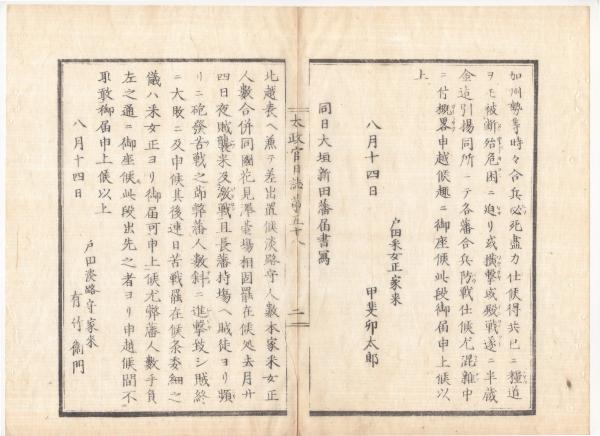 加州勢等時々合兵必死盡力仕候得共已ニ糧道
ヲモ被断殆危困ニ迫リ或横撃或殿戦遂ニ半藏
金迠引揚同所ニテ各藩合兵防戦仕候尤混雑中
ニ付概略申越候趣ニ御座候此段御届申上候以
上
八月十四日
戸田釆女正家来
甲斐卯太郎
同日大垣新田藩届書寫
太政官日誌第五十八
二
北越表ヘ兼テ差出置候淡路守人数本家釆女正
人数合併同國花見臺場相固罷在候処去月廿
四日夜賊襲来及激戦且長藩持場ヘ賊徒ヨリ頻
リニ砲發苦戦之節弊藩人数斜ニ進撃致シ賊終
ニ大敗ニ及申候其後連日苦戦罷在候条委細之
儀ハ釆女正ヨリ御届可申上候尤弊藩人数手負
左之通ニ御座候此段出先之者ヨリ申越候間不
取敢御届申上候以上
八月十四日
戸田淡路守家来
有竹衞門